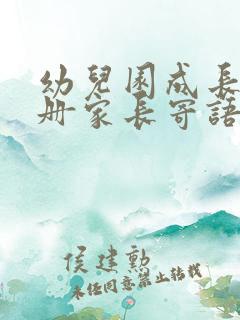 幼兒園成長
冊家長寄語
侯建勲
未經同意禁止轉載